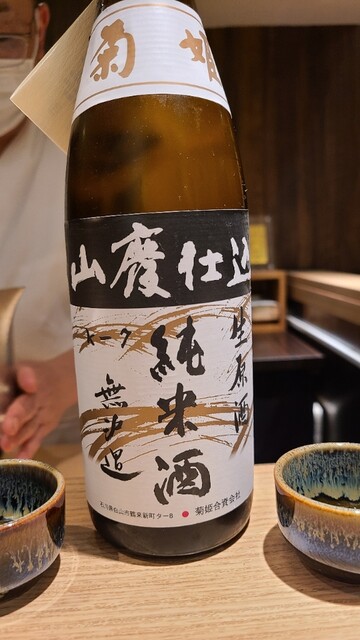 菊姫
山廃仕込
生原酒
純米酒
石川県白山市鶴来新町タ-8 菊姫合資会社